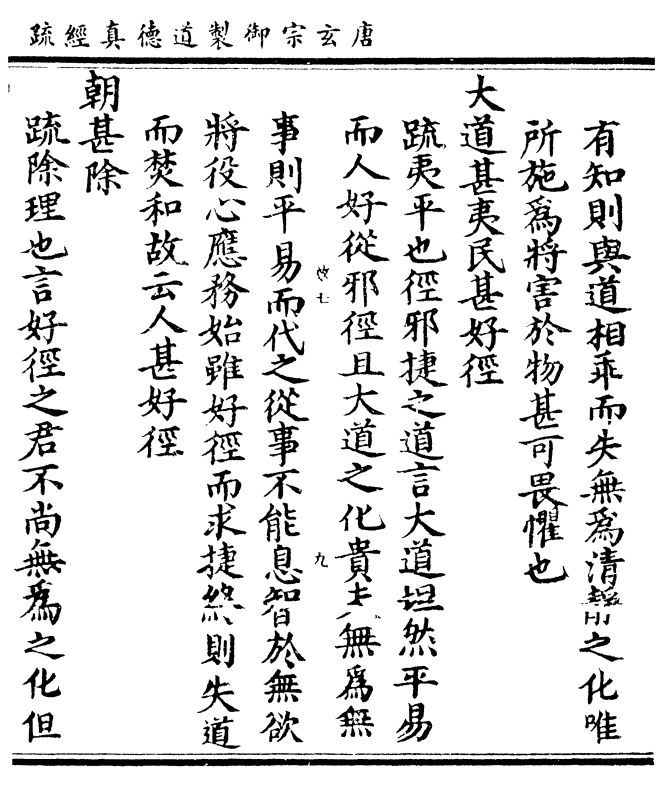 唐玄宗御製道德真經疏
有知則與道相乖而失無爲清靜之化唯
所施爲將害於物甚可畏懼也
大道甚夷民甚好徑
疏夷平也徑邪捷之道言大道坦然平易
而人好從邪徑且大道之化貴夫無爲無
效七
九
事則平易而代之從事不能息智於無欲
將役心應務始雖好徑而求捷終則失道
而焚和故云人甚好徑
朝甚除
疏除理也言好徑之君不尚無爲之化但